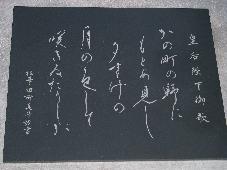 皇后陛下御歌
かの町の野に
もとめ見し
夕すげの
月の色して
咲きゐたりしが